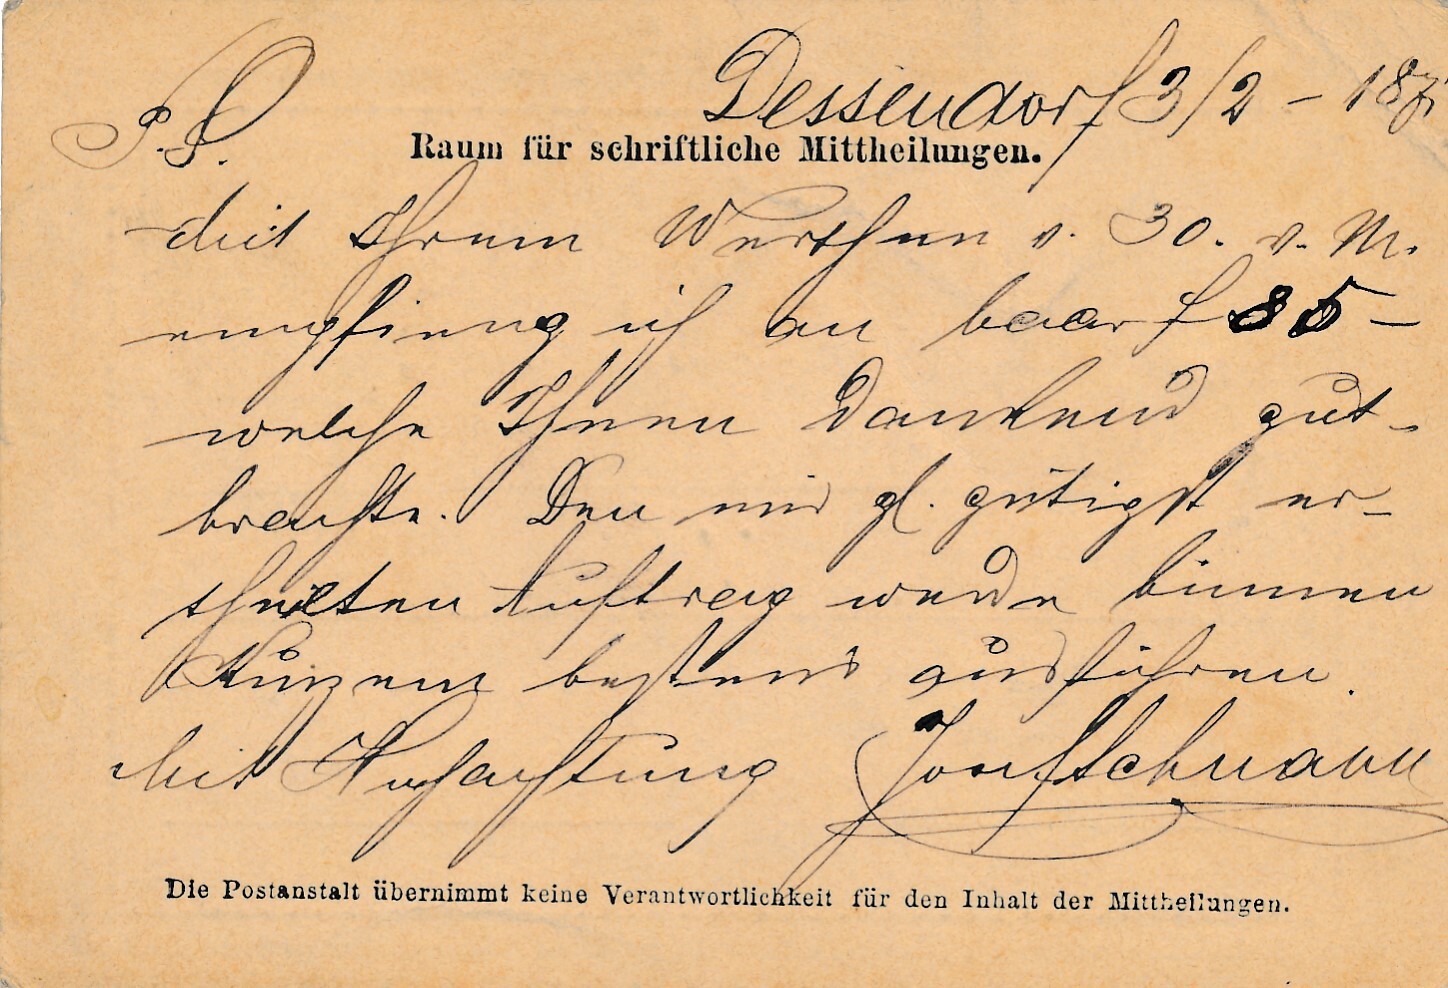 Dessendorf 3/2 - 187
P.P.
Raum für schriftliche Mittheilungen.
Mit Ihrem Werthen v. 30. v. M.
empfieng ich an baar f 85 –
welche Ihnen dankend gut-
brachte. Den mir gl. gütigst er-
theilten Auftrag werde binnen
Kurzem bestens ausführen.
Mit Hochachtung Josef
Die Postanstalt übernimmt keine Verantwortlichkeit für den Inhalt der Mittheilungen.